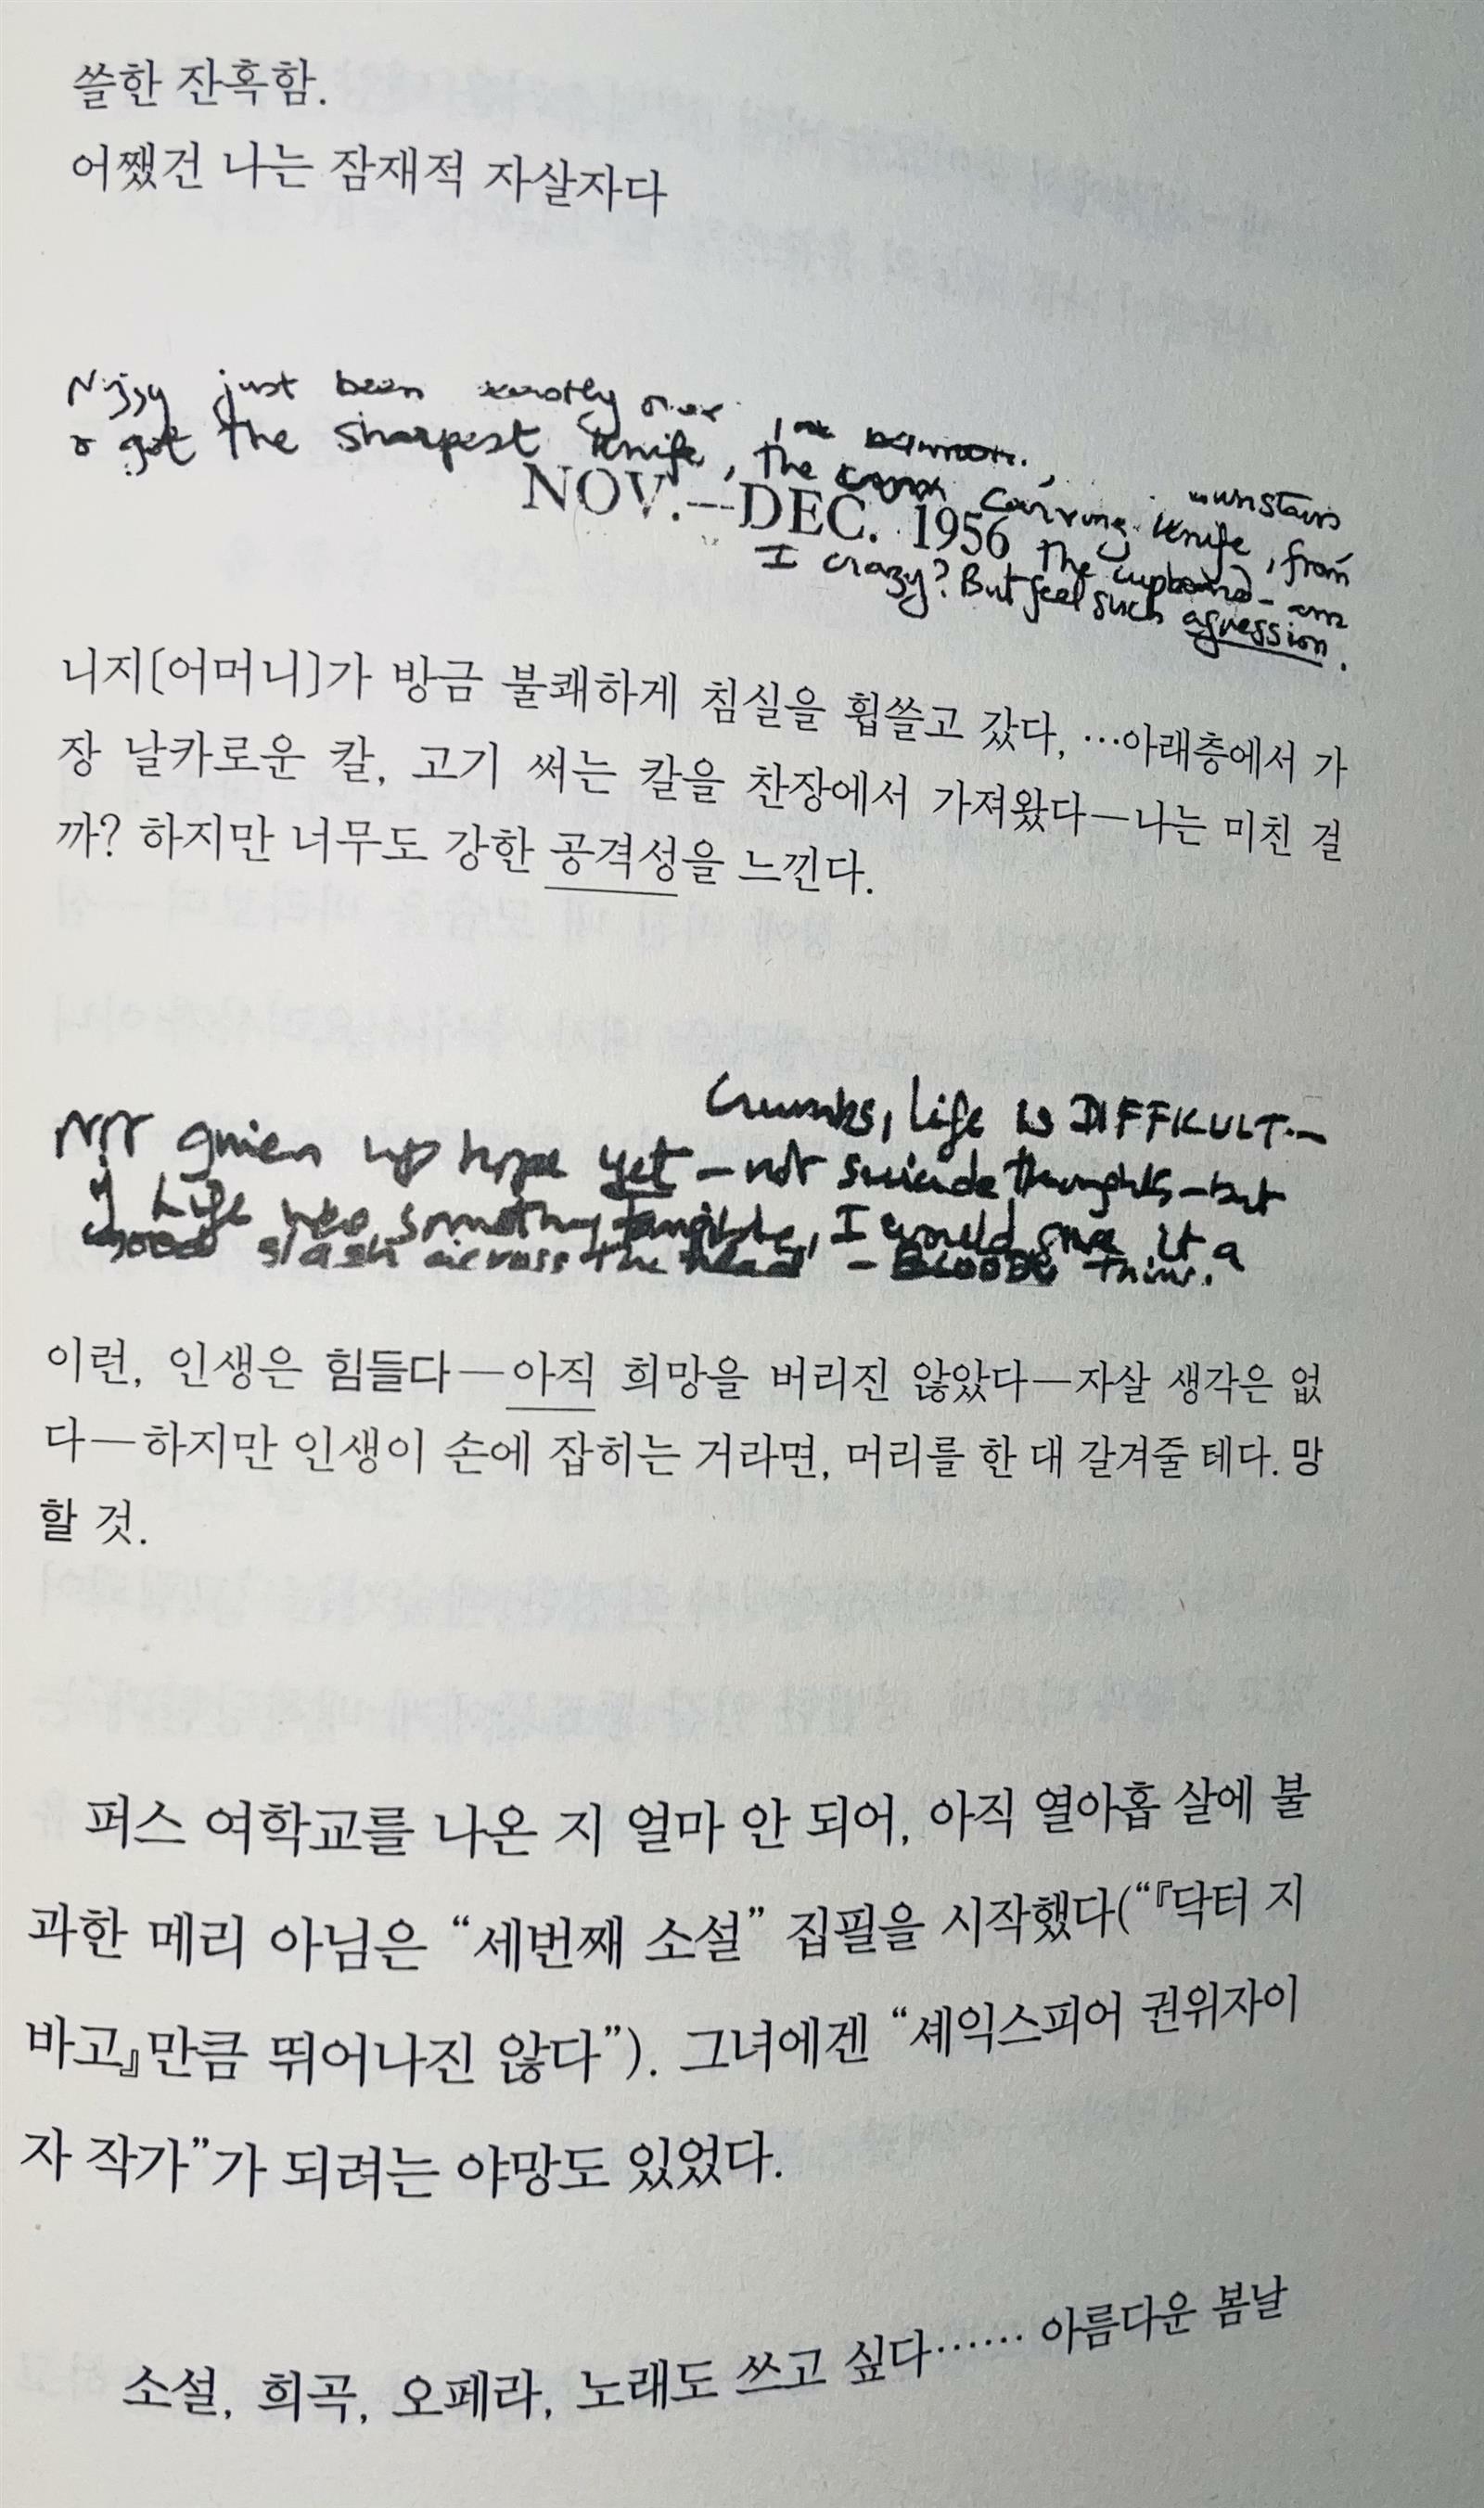 쓸한 잔혹함.
어쨌건 나는 잠재적 자살자다
just been over
got the sharpest knife, the carving knife, from
NOV.—DEC. 1956
the cupboard – am
I crazy? But feel such agression.
니지[어머니]가 방금 불쾌하게 침실을 휩쓸고 갔다, …아래층에서 가
장 날카로운 칼, 고기 써는 칼을 찬장에서 가져왔다—나는 미친 걸
까? 하지만 너무도 강한 공격성을 느낀다.
Crumbs, life is DIFFICULT.–
Not given up hope yet – not suicide thoughts – but
if life was something tangible, I would give it a
good slash across the head – BLOODY thing.
이런, 인생은 힘들다—아직 희망을 버리진 않았다—자살 생각은 없
다—하지만 인생이 손에 잡히는 거라면, 머리를 한 대 갈겨줄 테다. 망
할 것.
퍼스 여학교를 나온 지 얼마 안 되어, 아직 열아홉 살에 불
과한 메리 아님은 “세번째 소설” 집필을 시작했다(“『닥터 지
바고』만큼 뛰어나진 않다”). 그녀에겐 “셰익스피어 권위자이
자 작가”가 되려는 야망도 있었다.
소설, 희곡, 오페라, 노래도 쓰고 싶다…… 아름다운 봄날